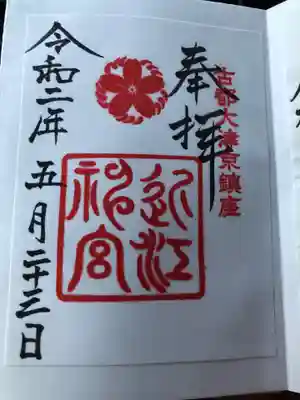 古都大津京鎮座
奉拝
近江神宮
令和二年五月二十三日